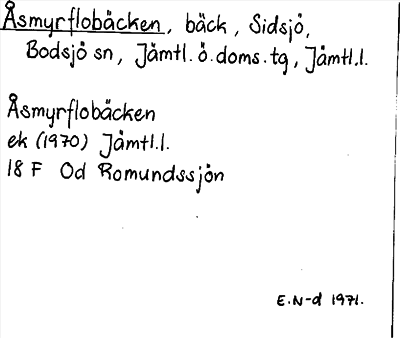 Åsmyrflobäcken, bäck, Sidsjö,
Bodsjö sn, Jämtl.ö.doms.tg, Jämtl.l.
Åsmyrflobäcken
ek (1970) Jämtl.l.
18 F Öd Romundssjön
E.N-d 1971.